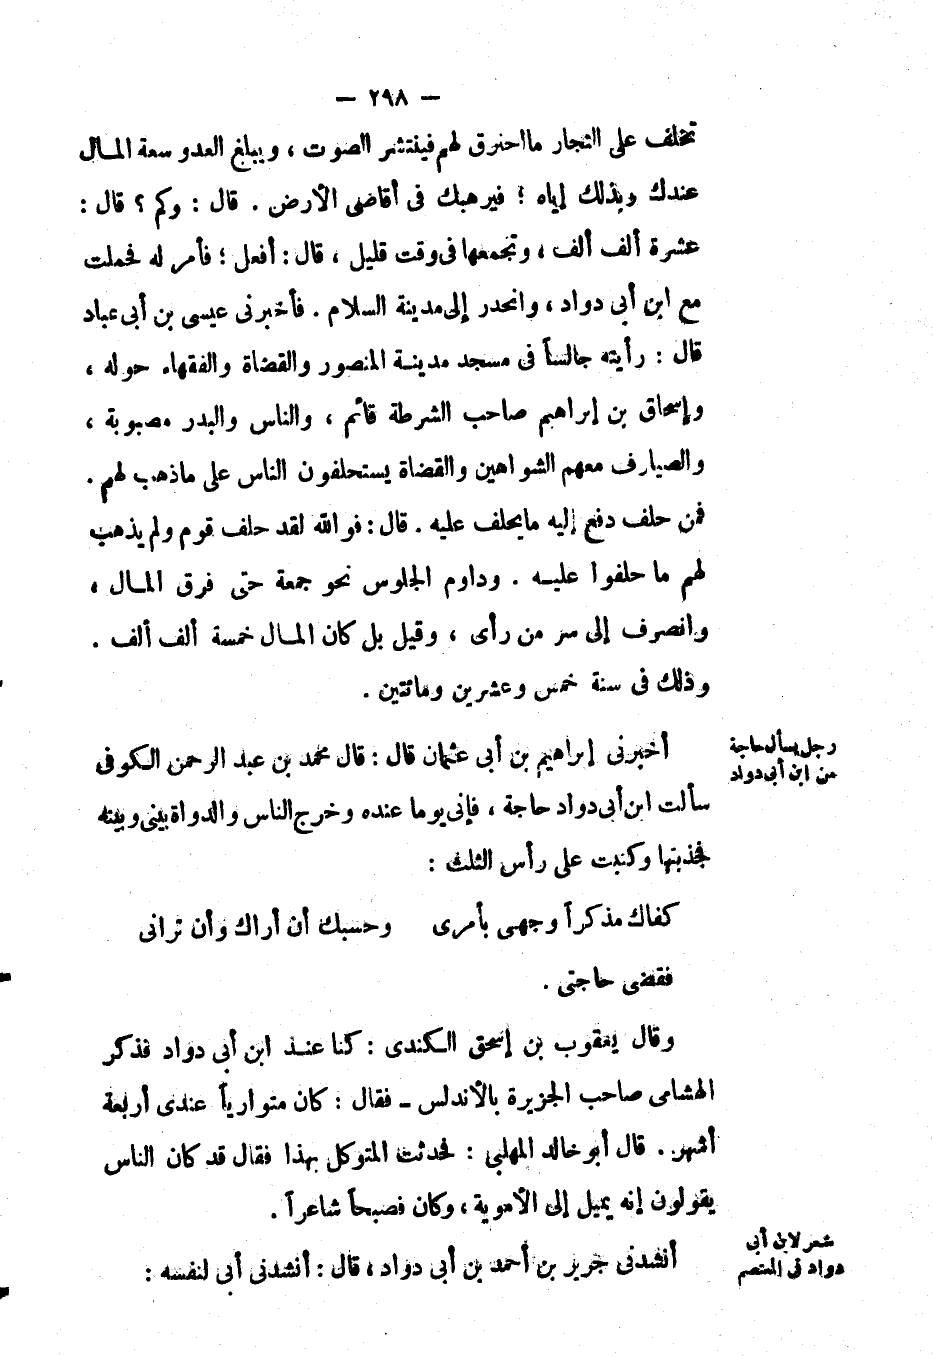 — ٢٩٨ —
تخلف على التجار ما احترق لهم فينتشر الصوت ، ويبلغ العدو سعة المـال
عندك وبذلك إياه ؛ فيرهبك فى أقاضى الأرض . قال : وكم ؟ قال :
عشرة ألف ألف ، وتجمعها فى وقت قليل ، قال : أفعل ؛ فأمر له فحملت
مع ابن أبى دواد ، وانحدر إلى مدينة السلام . فأخبرنى عيسى بن أبى عباد
قال : رأيته جالساً فى مسجد مدينـة المنصور والقضاة والفقهاء حوله ،
وإسحاق بن إبراهيم صاحب الشرطة قائم ، والناس والبدر مصبوبة ،
والصيارف معهم الشواهين والقضاة يستحلفون الناس على ماذهب لهم .
فمن حلف دفع إليه مايحلف عليه . قال : فوالله لقد حلف قوم ولم يذهب
لهم ما حلفوا عليـه . وداوم الجلوس نحو جمعة حتى فرق المـال ،
وانصرف إلى سر من رأى ، وقيل بل كان المـال خمسة ألف ألف .
وذلك فى سنة خمس وعشرين ومائتين .
رجل يسأل حاجة
من ابن أبى دواد
أخبرنى إبراهيم بن أبى عثمان قال : قال محمد بن عبد الرحمن الـكوفى
سألت ابن أبى دواد حاجة ، فإنى يوما عنده وخرج الناس والدواة بينى وبينه
فجذبتها وكتبت على رأس الثلث :
كفاك مذكراً وجهى بأمرى وحسبك أن أراك وأن ترانى
فقضى حاجتى .
وقال يعقوب بن إسحق الـكندى : كنا عنـد ابن أبى دواد فذكر
الهشامى صاحب الجزيرة بالأندلس ـ فقال : كان متوارياً عندى أربعة
أشهر . قال أبو خالد المهلبى : فحدثت المتوكل بهذا فقال قد كان الناس
يقولون إنه يميل إلى الأموية ، وكان فصيحاً شاعراً .
شعر لابن أبى
دواد فى المعتصم
أنشدنى جرير بن أحمد بن أبى دواد ، قال : أنشدنى أبى لنفسه :